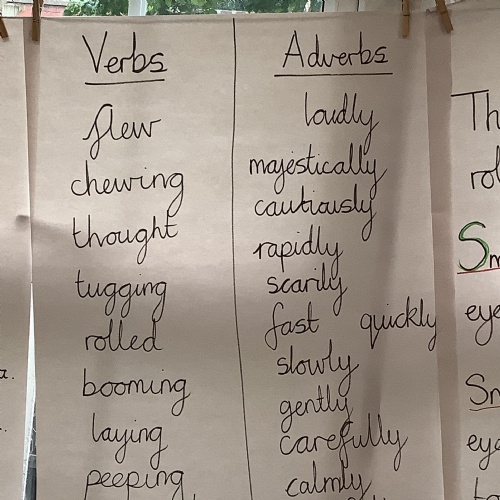 Verbs
flew
chewing
thought
tugging
rolled
booming
laying
peeping
Adverbs
loudly
majestically
cautiously
rapidly
scarily
fast quickly
slowly
gently
carefully
calmly